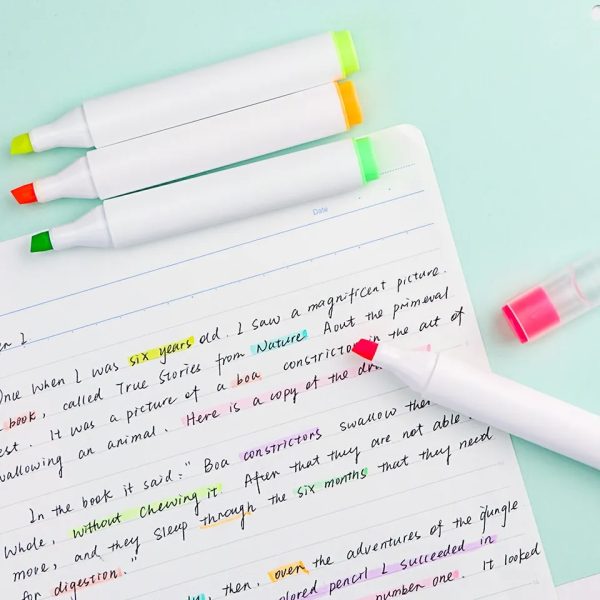 Date
en I
One when I was six years old. I saw a magnificent picture.
book, called True Stories from Nature Aout the primeval
est. It was a picture of a boa constrictor in the act of
wallowing an animal. Here is a copy of the
In the book it said: " Boa constrictors swallow
Whole, without chewing it. After that they are not able
more, and they sleep through the six months that they need
for digestion."
, then, over the adventures of the jungle
olored pencil I succeeded in
number one. It looked